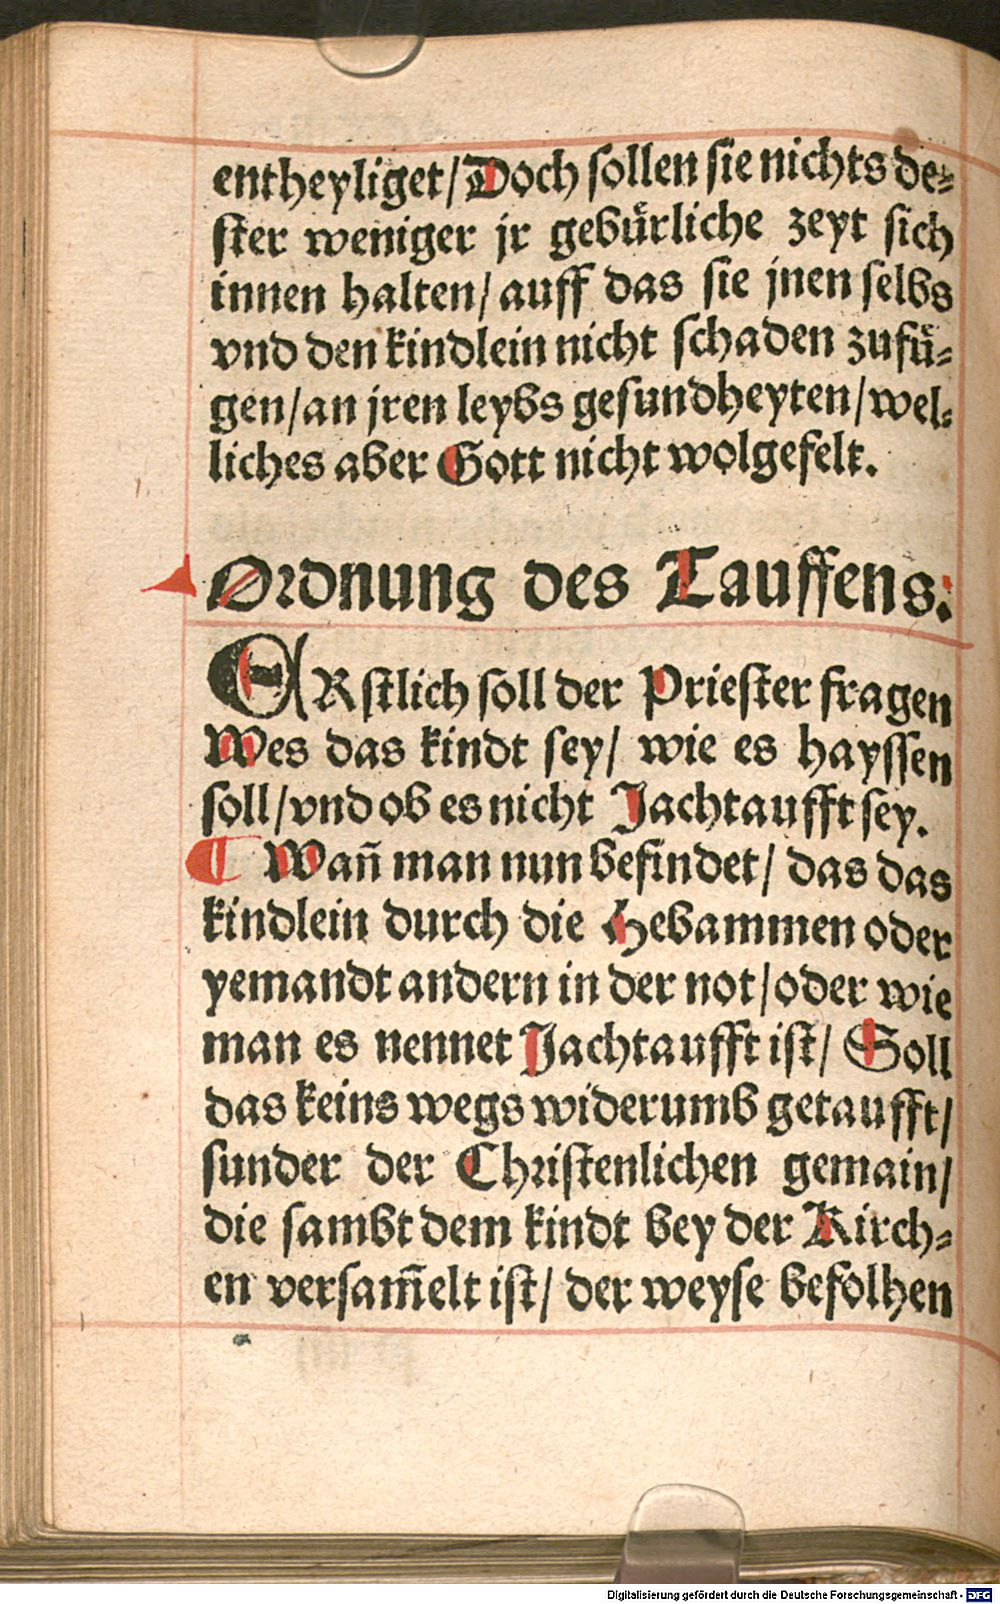 entheyliget/Doch sollen sie nichts de⸗
ster weniger jr gebuͤrliche zeyt sich
innen halten/ auff das sie jnen selbs
vnd den kindlein nicht schaden zufuͤ⸗
gen/an jren leybs gesundheyten/wel⸗
liches aber Gott nicht wolgefelt.
Ordnung des Tauffens.
ERstlich soll der Priester fragen
Wes das kindt sey/ wie es hayssen
soll/vnd ob es nicht Jachtaufft sey.
¶ Wañ man nun befindet/ das das
kindlein durch die Hebammen oder
yemandt andern in der not/oder wie
man es nennet Jachtaufft ist/ Soll
das keins wegs widerumb getaufft/
sunder der Christenlichen gemain/
die sambt dem kindt bey der Kirch⸗
en versam̄elt ist/ der weyse befolhen
Digitalisierung gefördert durch die Deutsche Forschungsgemeinschaft - DFG